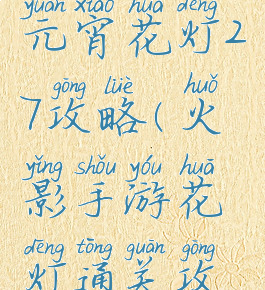 yuán xiāo huā dēng
元宵花灯2
gōng lüè huǒ
7攻略(火
yǐng shǒu yóu huā
影手游花
dēng tōng guān gōng
灯通关攻